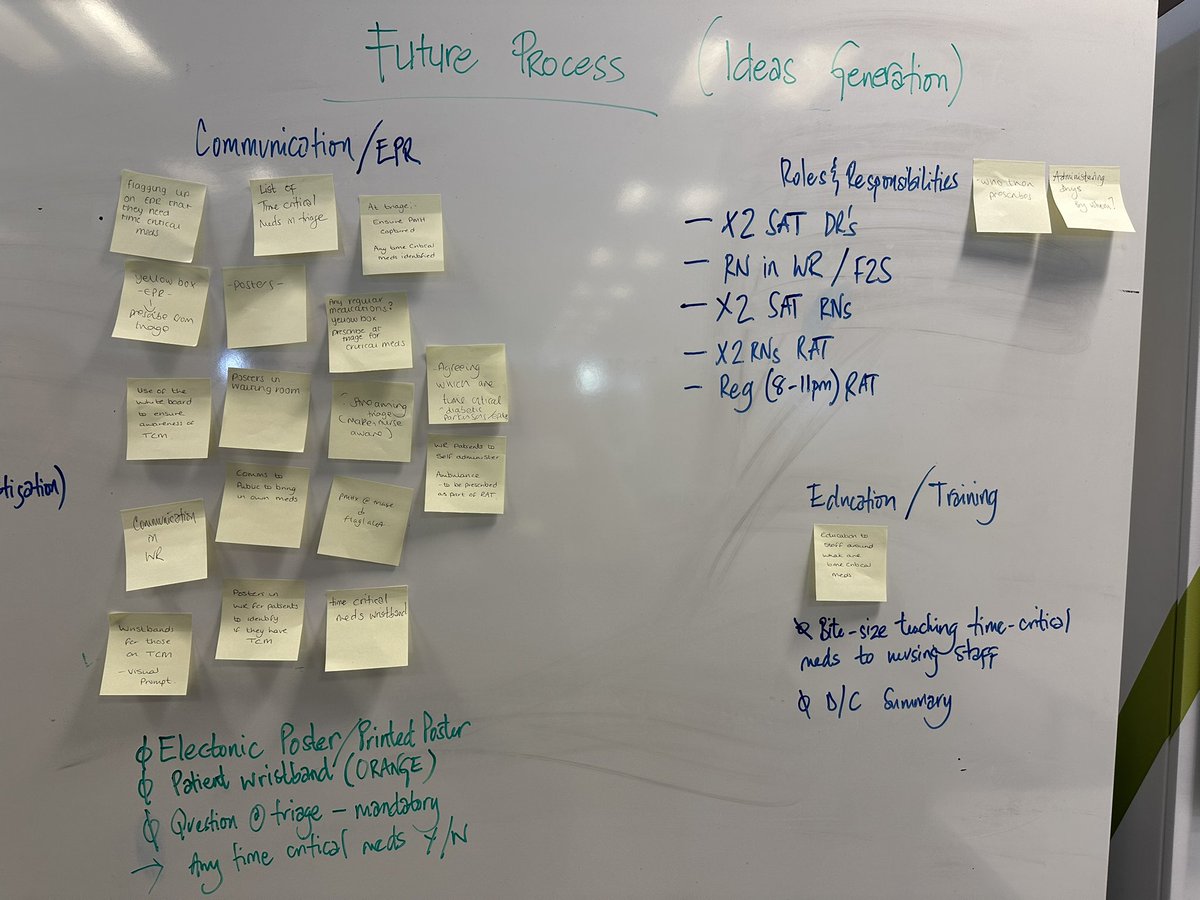 Future Process (Ideas Generation)
Communication/EPR
flagging up
on EPR that
they need
time critical
meds
List of
Time critical
Meds in triage
At triage,-
Ensure PMH
captured
Any time Critical
meds identified
yellow box
-EPR-
prescribe from
triage
-posters-
Any regular
medications?
yellow box
prescribe at
triage for
critical meds
Use of the
white board
to ensure
awareness of
TCM
Posters in
waiting room
Streaming
triage
(make nurse
aware)
-Agreeing
which are
time critical
-diabetic
parkinsons/
WR Patients to
Self administer
Ambulance
- to be prescribed
as part of RAT
tisation)
Communication
in
WR
Comms to
Public to bring
in own meds
@
Wristbands
for those
on TCM
- Visual
Prompt
Posters in
WR for patients
to identify
if they have
TCM
time critical
meds wristband
Electonic Poster/Printed Poster
Patient wristband (ORANGE)
Question @ triage - mandatory
→ Any time critical meds Y/N
Roles & Responsibilities
-who then
prescribes
Administering
drugs
By whom?
- X2 SAT DR's
- RN in WR / F2S
- X2 SAT RNs
- X2 RNs RAT
- Reg (8-11pm) RAT
Education / Training
Education to
staff around
what are
time critical
meds
Bite-size teaching time-critical
meds to nursing staff
D/C Summary